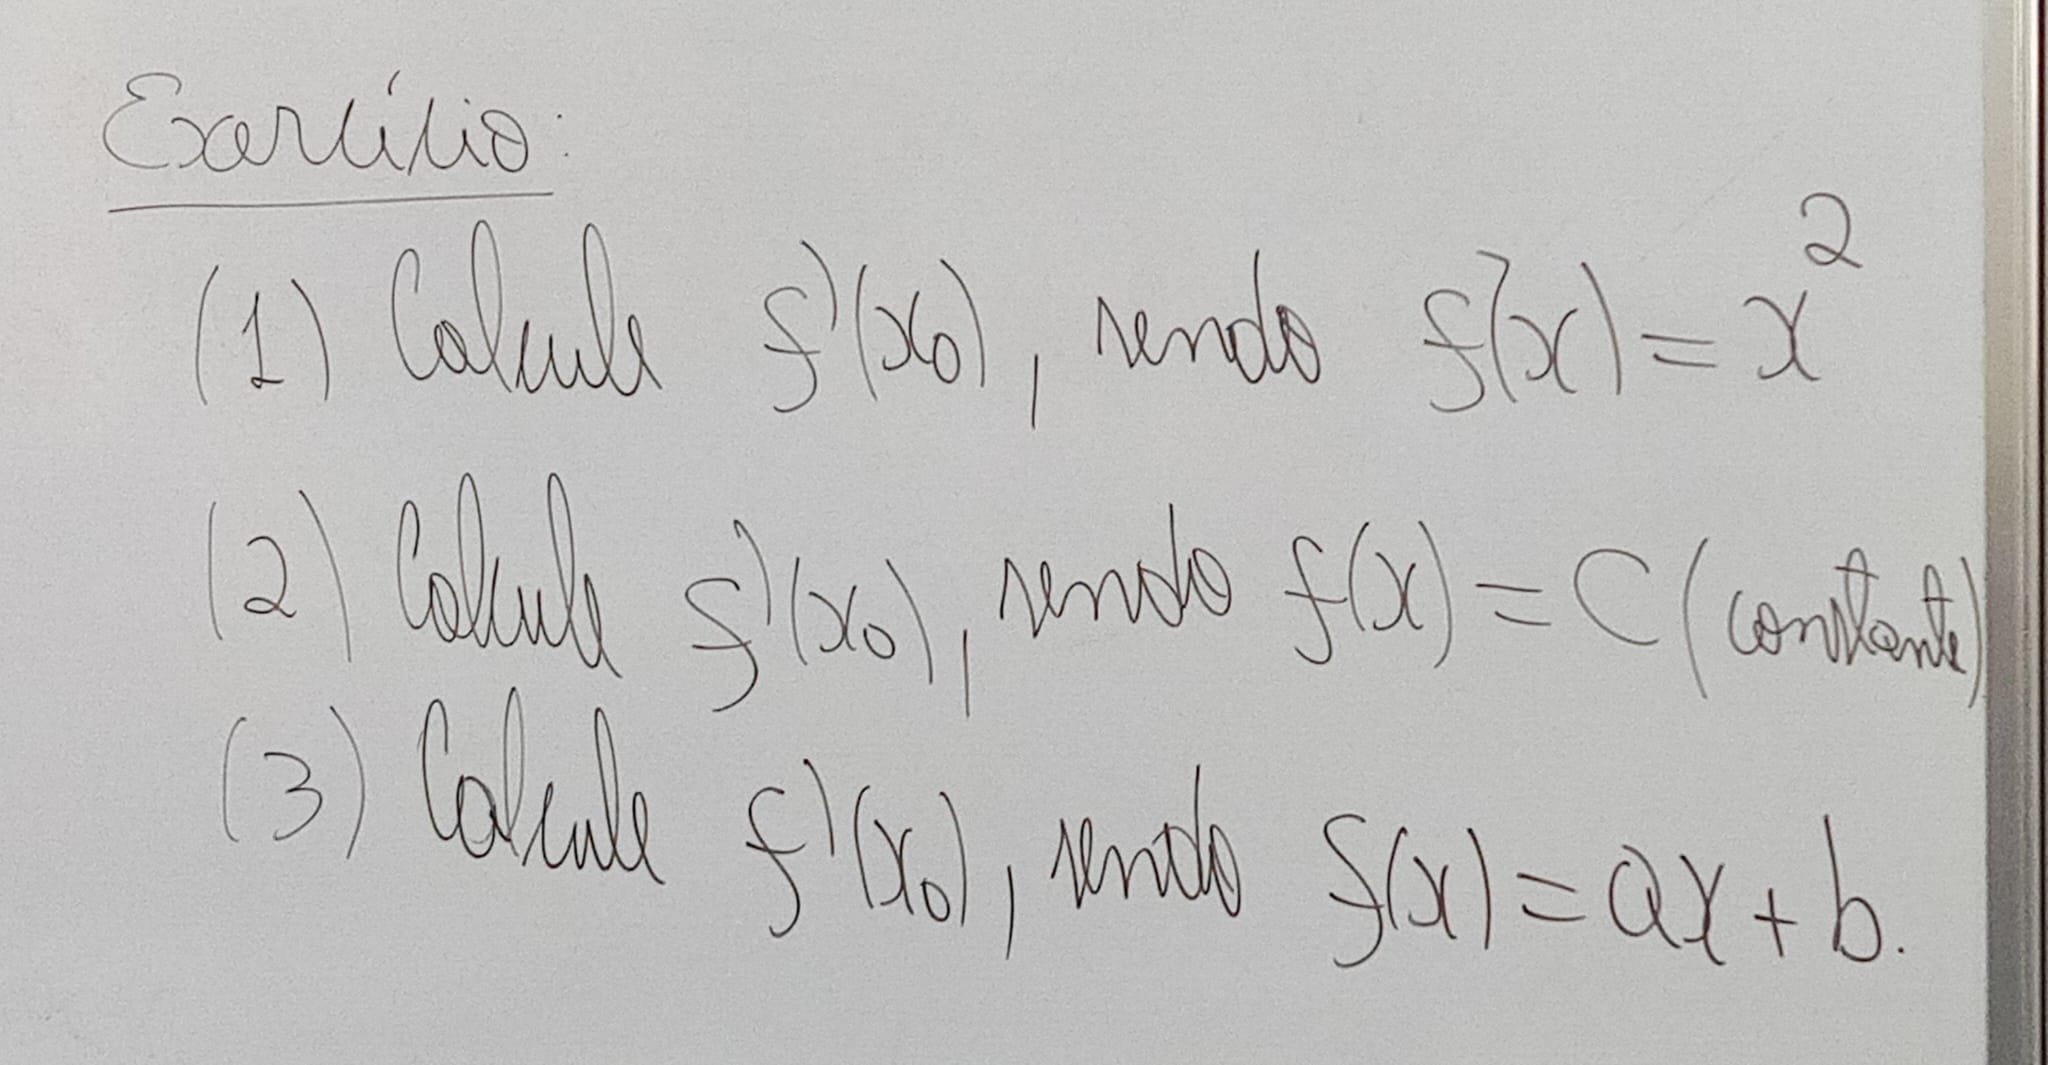 Exercício:
(1) Calcule f'(x₀), sendo f(x) = x²
(2) Calcule f'(x₀), sendo f(x) = C (constante)
(3) Calcule f'(x₀), sendo f(x) = ax + b.